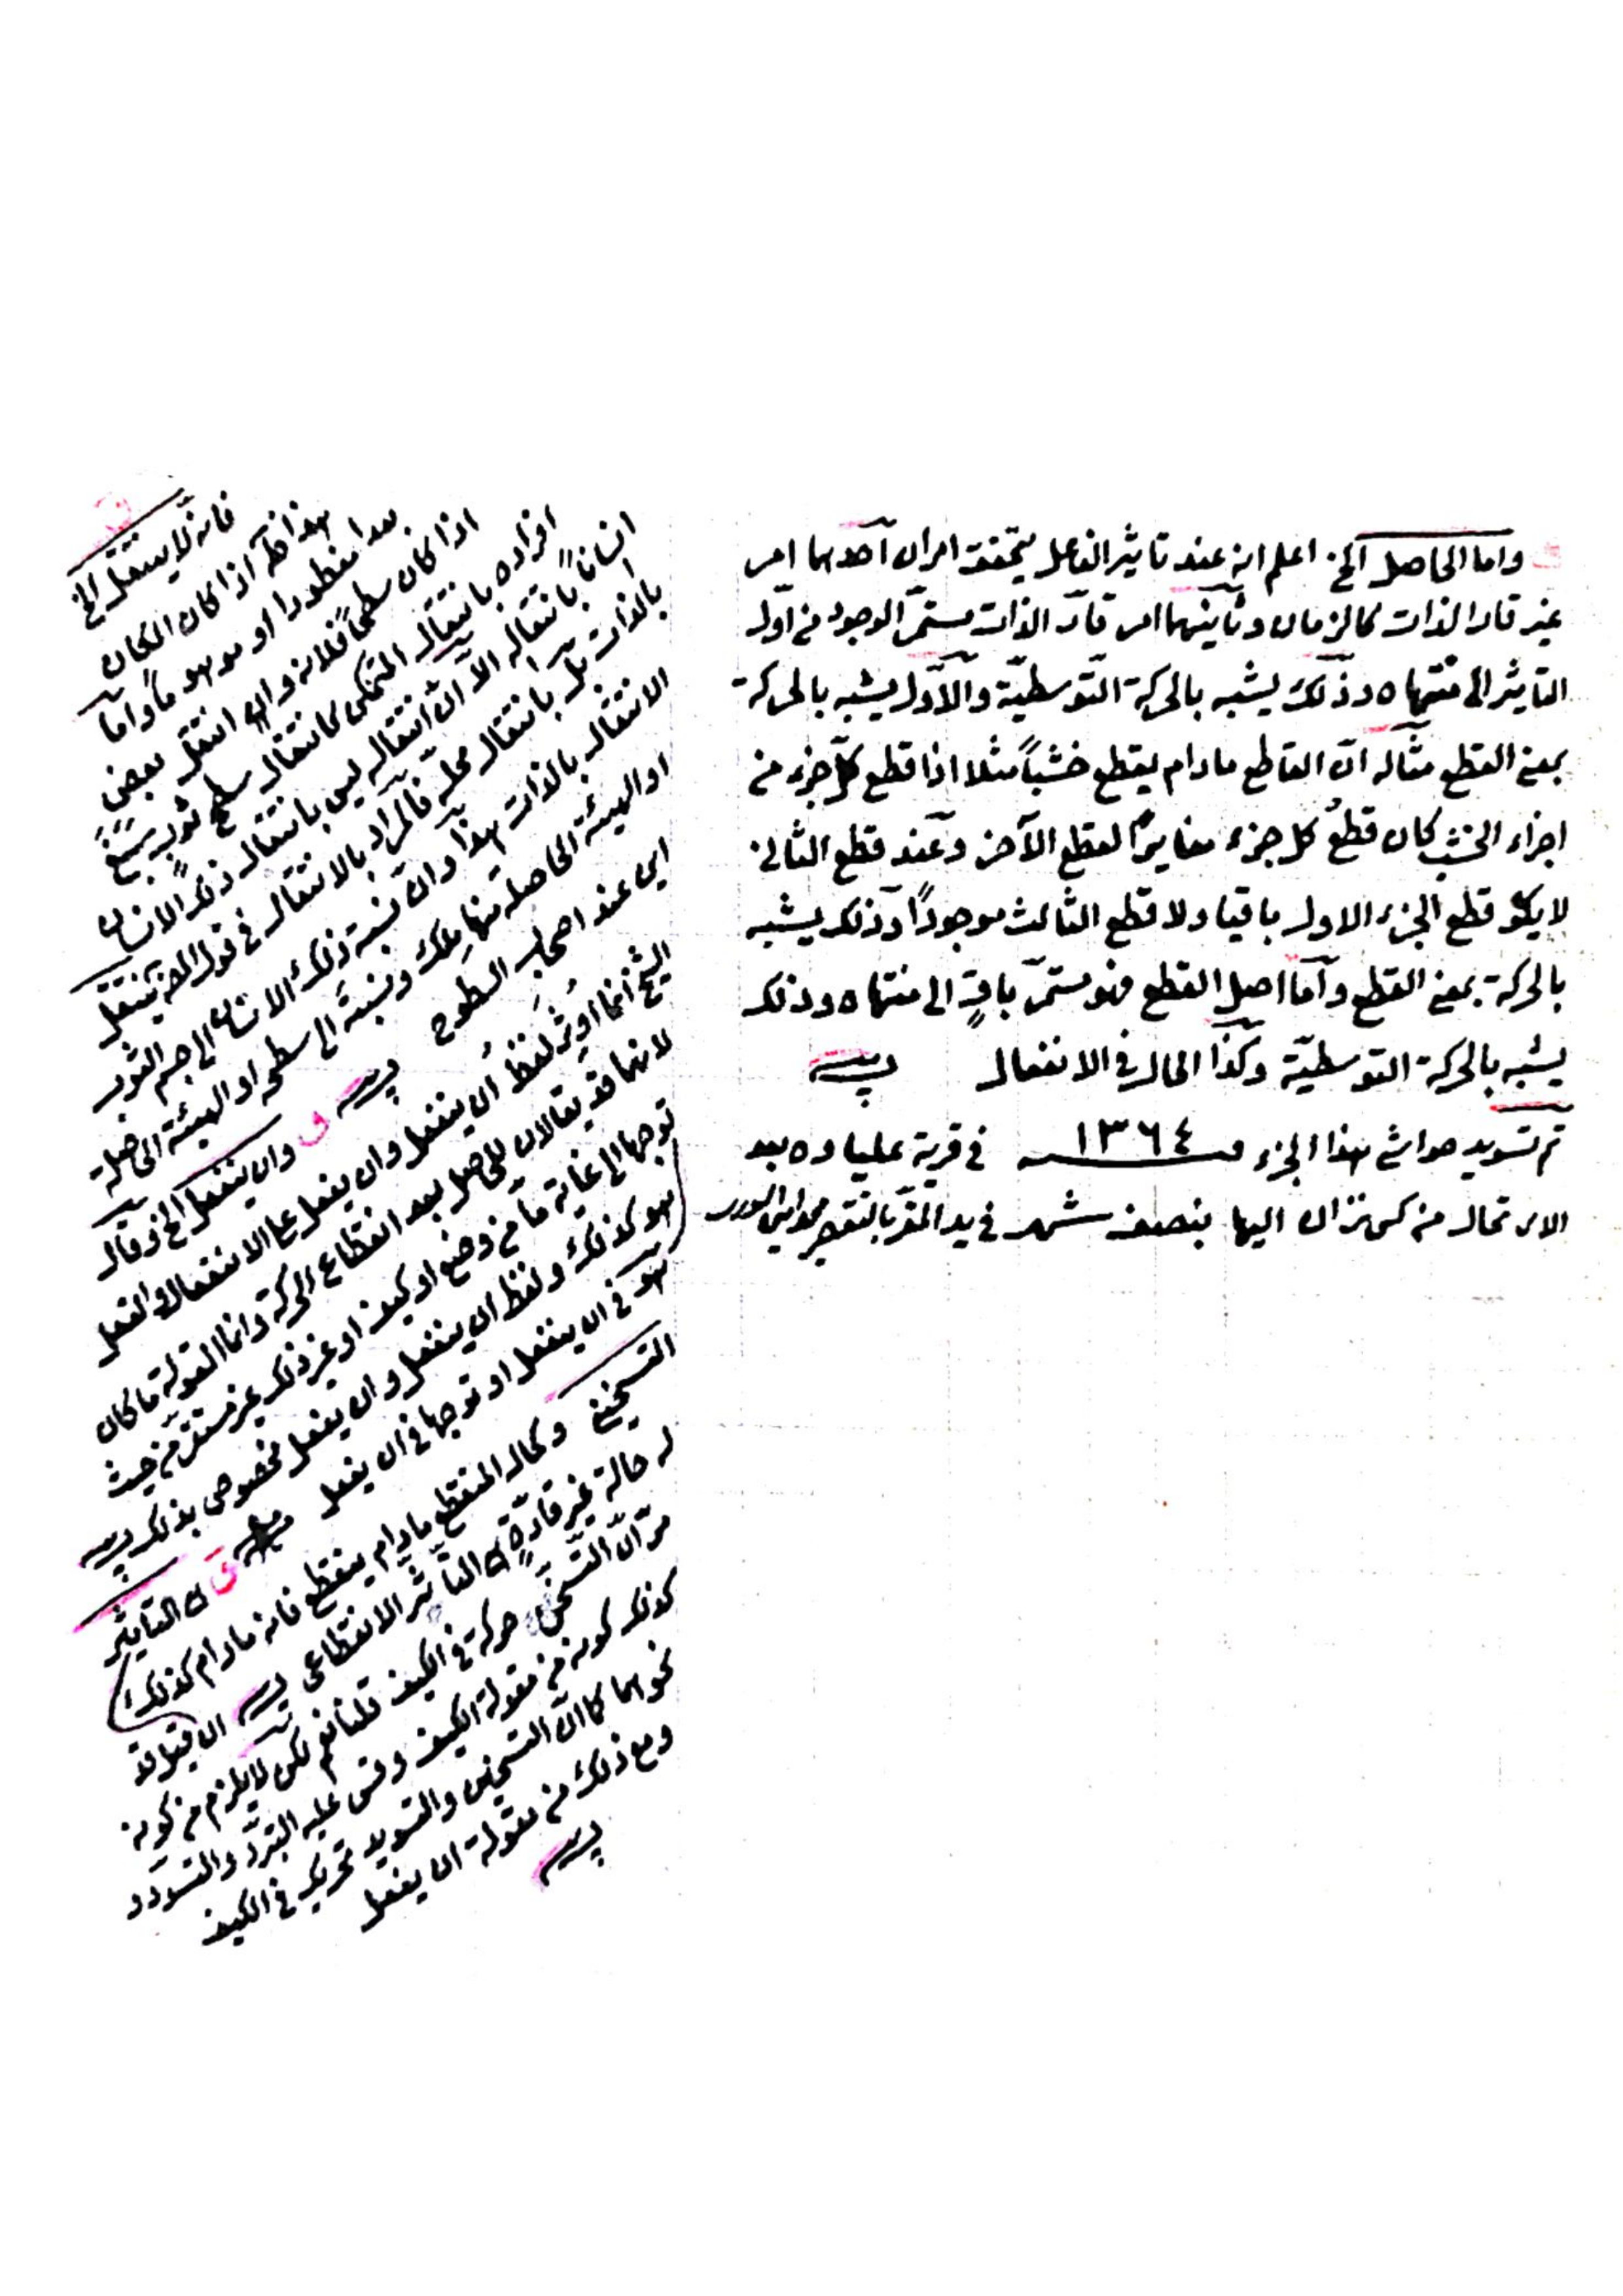 واما الحاصل الخ اعلم انه عند تاثير الفاعل يتحقق امران احدهما امر
غير قار الذات كالزمان وثانيهما امر قار الذات مستمر الوجود من اول
التاثير الى منتهاه وذلك يشبه بالحركة التوسطية والاول يشبه بالحركة
بمعنى القطع مثاله ان القاطع مادام يقطع خشباً مثلا اذا قطع كل جزء من
اجزاء الخشب كان قطع كل جزء مغايرا لقطع الآخر وعند قطع الثاني
لا يكون قطع الجزء الاول باقيا ولا قطع الثالث موجوداً وذلك يشبه
بالحركة بمعنى القطع واما اصل القطع فهو مستمر باقٍ الى منتهاه وذلك
يشبه بالحركة التوسطية وكذا الحال في الانفعال
تم تسويد حواشي هذا الجزء ١٣٦٤ في قرية عليا وه بعد
الارتحال من اليها بنصف شهر في يد المقر بالتقصير
فانه لا ينتقل الخ
هذا ظاهر اذا كان المكان
بعدا مفطورا او موهوماً واما
اذا كان سطحاً فلانه وان انتقل بعض
افراده بانتقال المتمكن كانتقال سطح ثوب
انساناً بانتقاله الا ان انتقاله ليس بانتقال ذلك الانسان
بالذات بل بانتقال محله فالمراد بالانتقال في قوله ينتقل
الانتقال بالذات هذا وان نسبة ذلك الانسان الى جسم الثوب
او الهيئة الحاصلة منها ملك ونسبته الى سطحه او الهيئة الحاصلة
اين عند اصحاب السطوح وان ينفعل الخ وقال
الشيخ انما اوثر لفظ ان ينفعل وان يفعل على الانفعال والفعل
لانهما قد يقالان للحاصل بعد انقطاع الحركة وانما المقولة ما كان
توجها الى غاية ما من وضع او كيف او غير ذلك غير مستقر من حيث
هو كذلك ولفظ ان ينفعل وان يفعل مخصوص بذلك
هو في ان ينفعل او توجها في ان يفعل التاثير
التسخيني وكحال المنقطع مادام ينقطع فانه مادام كذلك
له حالة غير قارة التأثر الانقطاعي ان قيل قد
مر ان التسخن حركة في الكيف قلنا نعم لكن لا يلزم من كونه
كذلك كونه من مقولة الكيف وقس عليه التبرد والتسود
نحوهما كما ان التسخين والتسويد تحريك في الكيف
ومع ذلك من مقولة ان يفعل